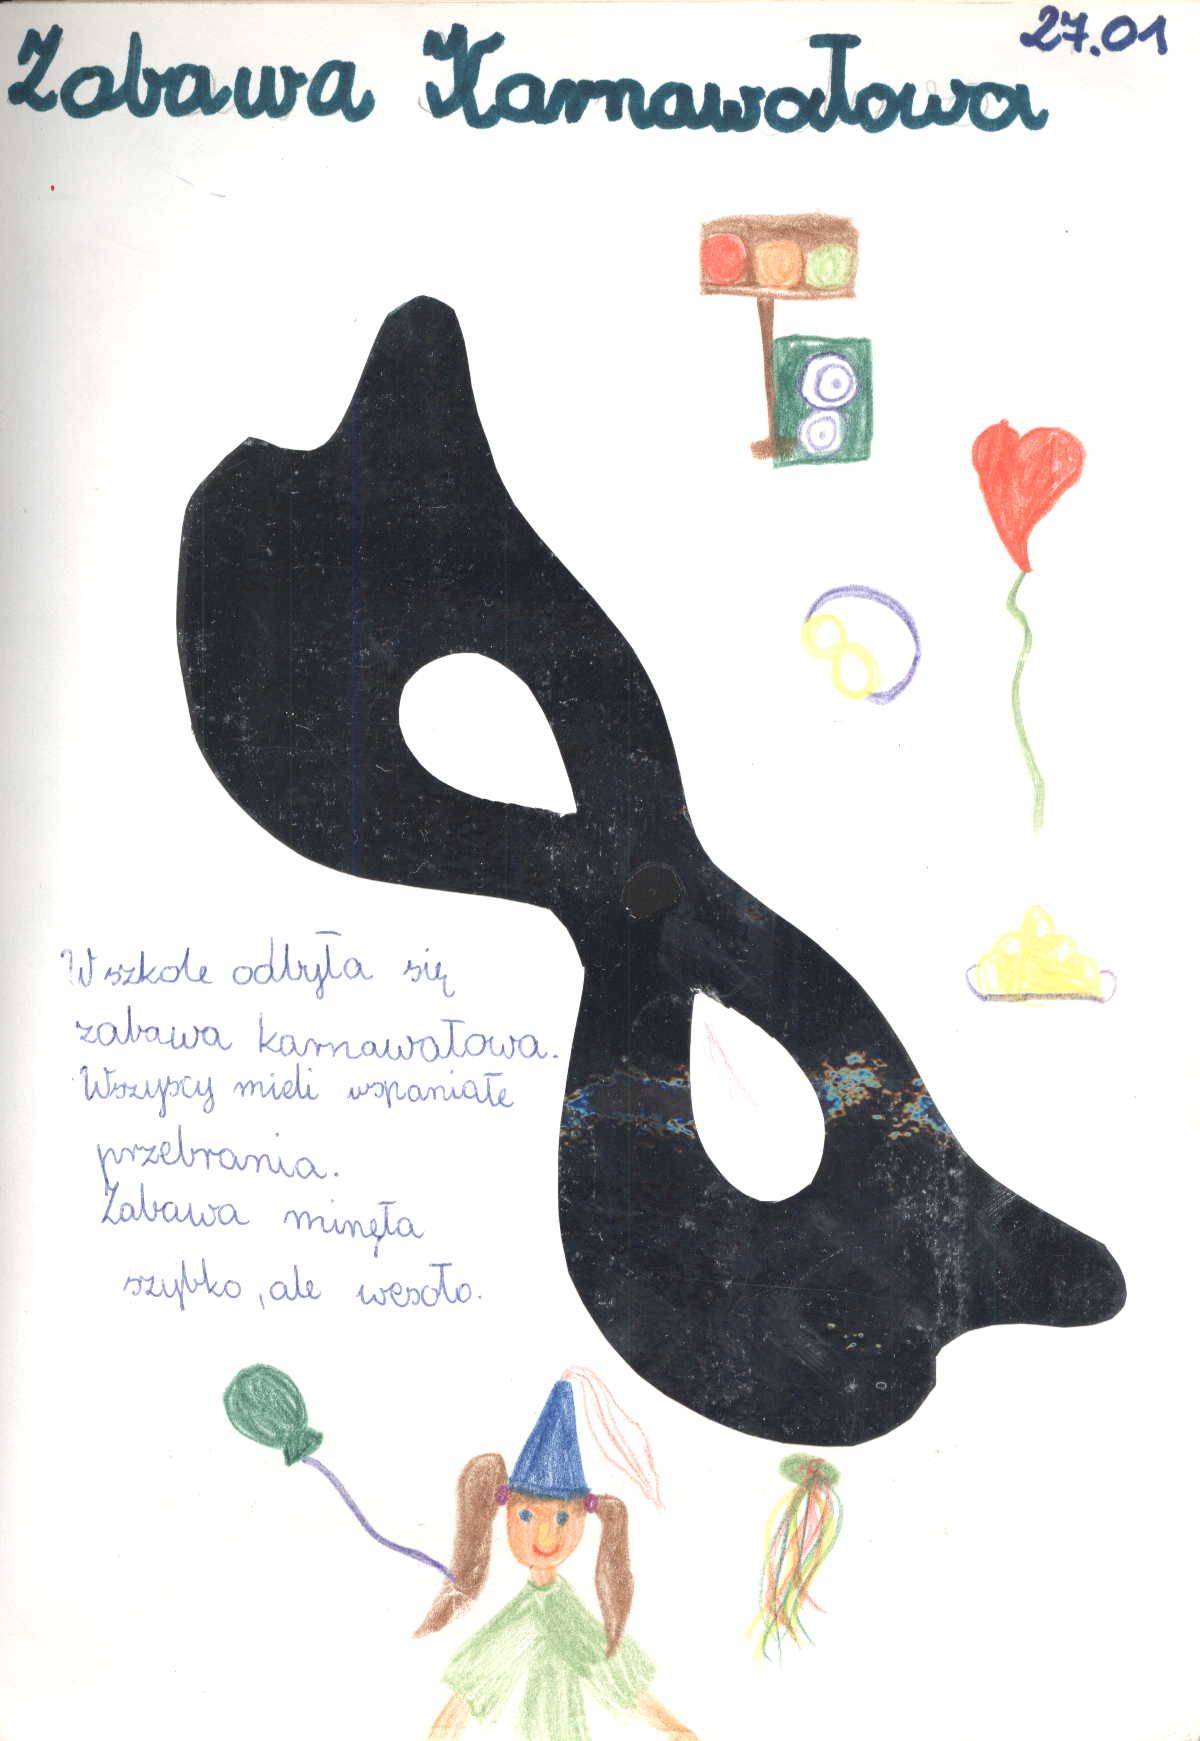 27.01
Zabawa Karnawałowa
W szkole odbyła się
zabawa karnawałowa.
Wszyscy mieli wspaniałe
przebrania.
Zabawa minęła
szybko, ale wesoło.